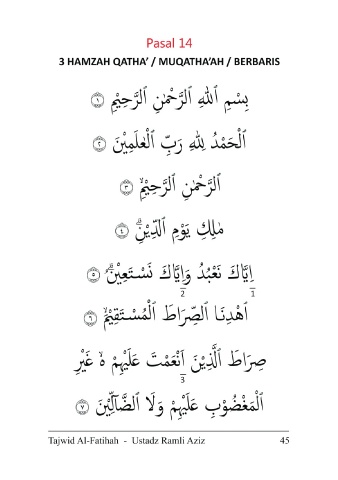 Pasal 14
3 HAMZAH QATHA’ / MUQATHA’AH / BERBARIS
بِسْمِ اللهِ الرَّحْمٰنِ الرَّحِيْمِ ۝١
اَلْحَمْدُ لِلهِ رَبِّ الْعٰلَمِيْنَ ۝٢
الرَّحْمٰنِ الرَّحِيْمِۙ ۝٣
مٰلِكِ يَوْمِ الدِّيْنِۗ ۝٤
اِيَّاكَ نَعْبُدُ وَاِيَّاكَ نَسْتَعِيْنُۗ ۝٥
1 2
اِهْدِنَا الصِّرَاطَ الْمُسْتَقِيْمَۙ ۝٦
صِرَاطَ الَّذِيْنَ اَنْعَمْتَ عَلَيْهِمْ ەۙ غَيْرِ
3
الْمَغْضُوْبِ عَلَيْهِمْ وَلَا الضَّاۤلِّيْنَ ۝٧
Tajwid Al-Fatihah - Ustadz Ramli Aziz 45